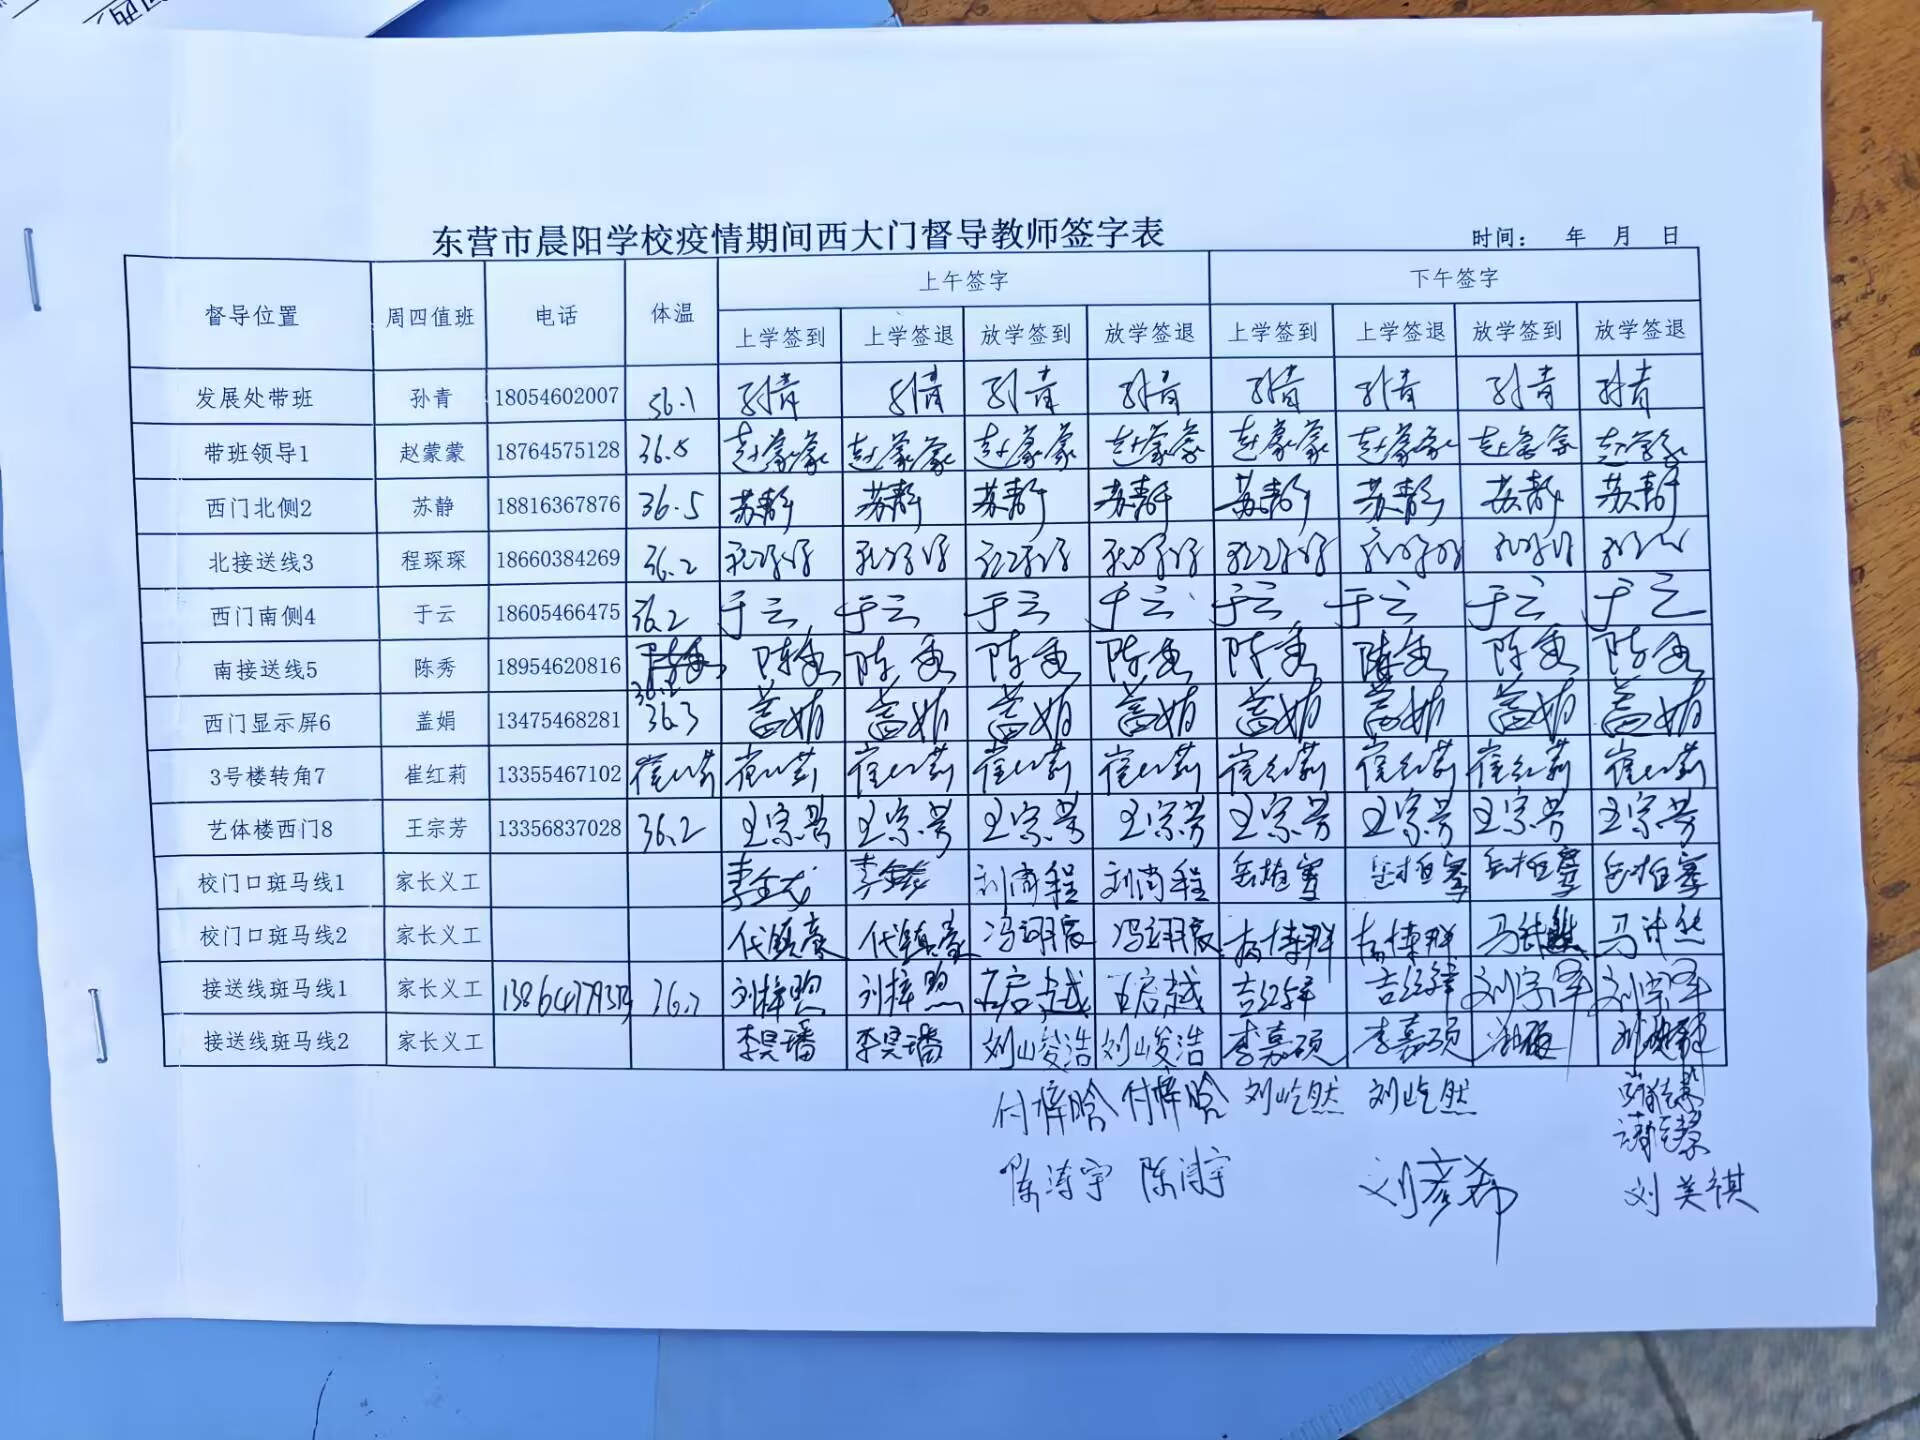 东营市晨阳学校疫情期间西大门督导教师签字表
时间： 年 月 日
督导位置 周四值班 电话 体温 上午签字 下午签字
上学签到 上学签退 放学签到 放学签退 上学签到 上学签退 放学签到 放学签退
发展处带班 孙青 18054602007 36.1 孙青 孙青 孙青 孙青 孙青 孙青 孙青 孙青
带班领导1 赵蒙蒙 18764575128 36.5 赵蒙蒙 赵蒙蒙 赵蒙蒙 赵蒙蒙 赵蒙蒙 赵蒙蒙 赵蒙蒙 赵蒙蒙
西门北侧2 苏静 18816367876 36.5 苏静 苏静 苏静 苏静 苏静 苏静 苏静 苏静
北接送线3 程琛琛 18660384269 36.2 程琛琛 程琛琛 程琛琛 程琛琛 程琛琛 程琛琛 程琛琛 程琛琛
西门南侧4 于云 18605466475 36.2 于云 于云 于云 于云 于云 于云 于云 于云
南接送线5 陈秀 18954620816 36.2 陈秀 陈秀 陈秀 陈秀 陈秀 陈秀 陈秀 陈秀
西门显示屏6 盖娟 13475468281 36.3 盖娟 盖娟 盖娟 盖娟 盖娟 盖娟 盖娟 盖娟
3号楼转角7 崔红莉 13355467102 崔红莉 崔红莉 崔红莉 崔红莉 崔红莉 崔红莉 崔红莉 崔红莉 崔红莉
艺体楼西门8 王宗芳 13356837028 36.2 王宗芳 王宗芳 王宗芳 王宗芳 王宗芳 王宗芳 王宗芳 王宗芳
校门口斑马线1 家长义工 刘尚程 刘尚程
校门口斑马线2 家长义工 代镇豪 代镇豪 冯翊宸 冯翊宸 马计然
接送线斑马线1 家长义工 36.2 刘梓煦 刘梓煦 王启越 王启越 刘宗泽 刘宗泽
接送线斑马线2 家长义工 李昊璠 李昊璠 刘峻浩 刘峻浩 李嘉硕 李嘉硕
付梓晗 付梓晗 刘屹然 刘屹然
陈涛宇 陈涛宇 刘彦希 刘美祺